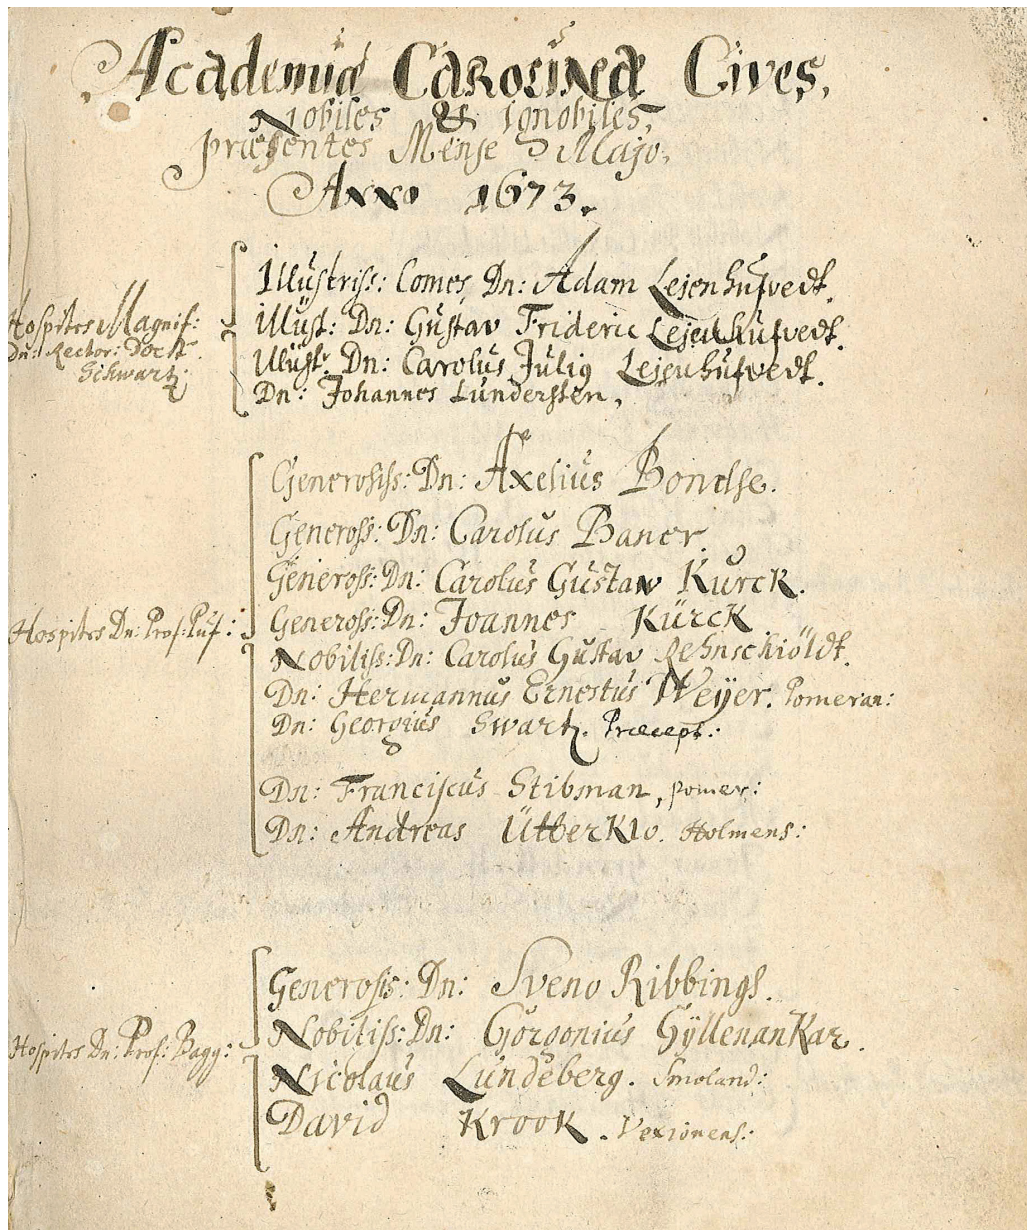 Academiæ Carolinæ Cives,
Nobiles & ignobiles,
præsentes Mense Majo,
Anno 1673.
Hospites Magnif:
Dn: Rector: Doct.
Schwartz
Illustriss: Comes Dn: Adam Lejenhufvedt.
Illust: Dn: Gustav Frideric Lejenhufvedt.
Illust. Dn: Carolus Julius Lejenhufvedt.
Dn: Johannes Lundersten,
Hospites Dn: Prof: Puf:
Generosiss: Dn: Axelius Bondhe.
Geneross: Dn: Carolus Baner.
Geneross: Dn: Carolus Gustaw Kurck.
Geneross: Dn: Joannes Kürck
Nobiliss: Dn: Carolus Gustav Rehnschiöldt.
Dn: Hermannus Ernestus Weÿer. Pomeran:
Dn: Georgius Swartz. Præcept:
Dn: Franciscus Stibman, pomer:
Dn: Andreas Ütterklo. Holmens:
Hospites Dn: Prof: Bagg:
Generosis: Dn: Sveno Ribbings.
Nobiliss: Dn: Gorgonius Gÿllenankar.
Nicolaus Lundeberg. Smoland:
David Krook. Vexionens: